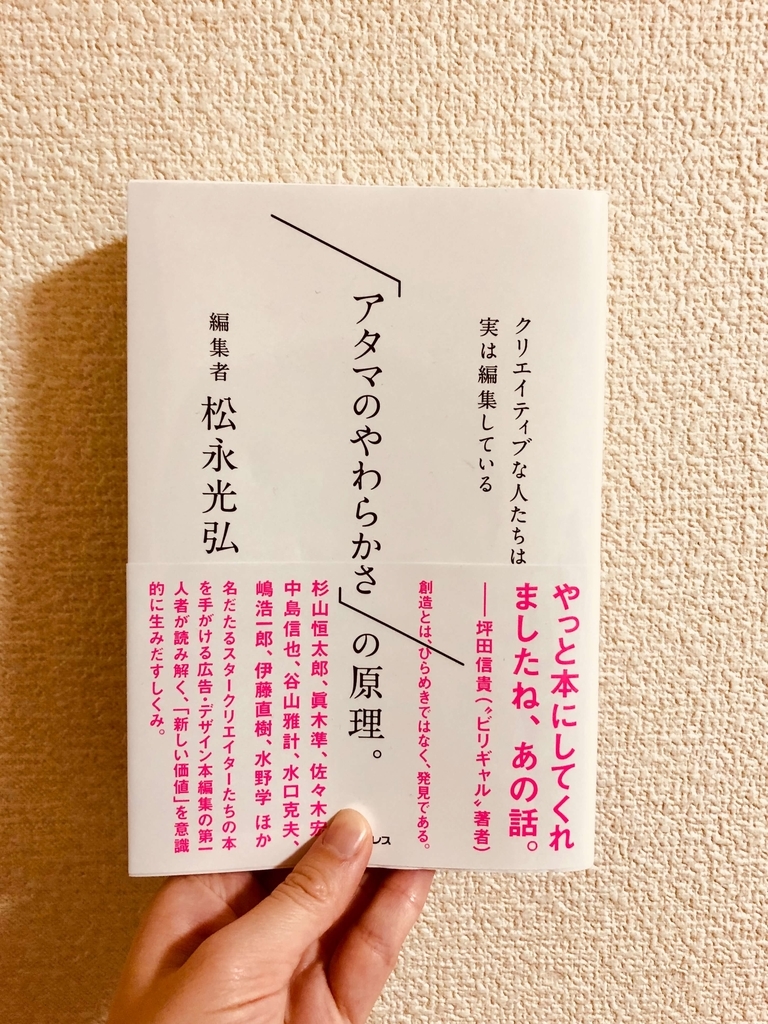 クリエイティブな人たちは
実は編集している
「アタマのやわらかさ」の原理。
編集者 松永光弘
やっと本にしてくれ
ましたね、あの話。
——坪田信貴(〝ビリギャル〟著者)
創造とは、ひらめきではなく、発見である。
杉山恒太郎、眞木準、佐々木宏、
中島信也、谷山雅計、水口克夫、
嶋浩一郎、伊藤直樹、水野学 ほか
名だたるスタークリエイターたちの本
を手がける広告・デザイン本編集の第一
人者が読み解く、「新しい価値」を意識
的に生みだすしくみ。
レス